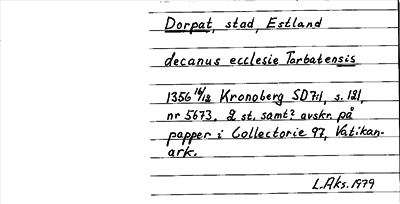 Dorpat, stad, Estland
decanus ecclesie Tarbatensis
1356 16/12 Kronoberg SD7:1, s. 121,
nr 5673. 2 st. samt? avskr. på
papper i Collectorie 97, Vatikan-
ark.
L.Aks. 1979